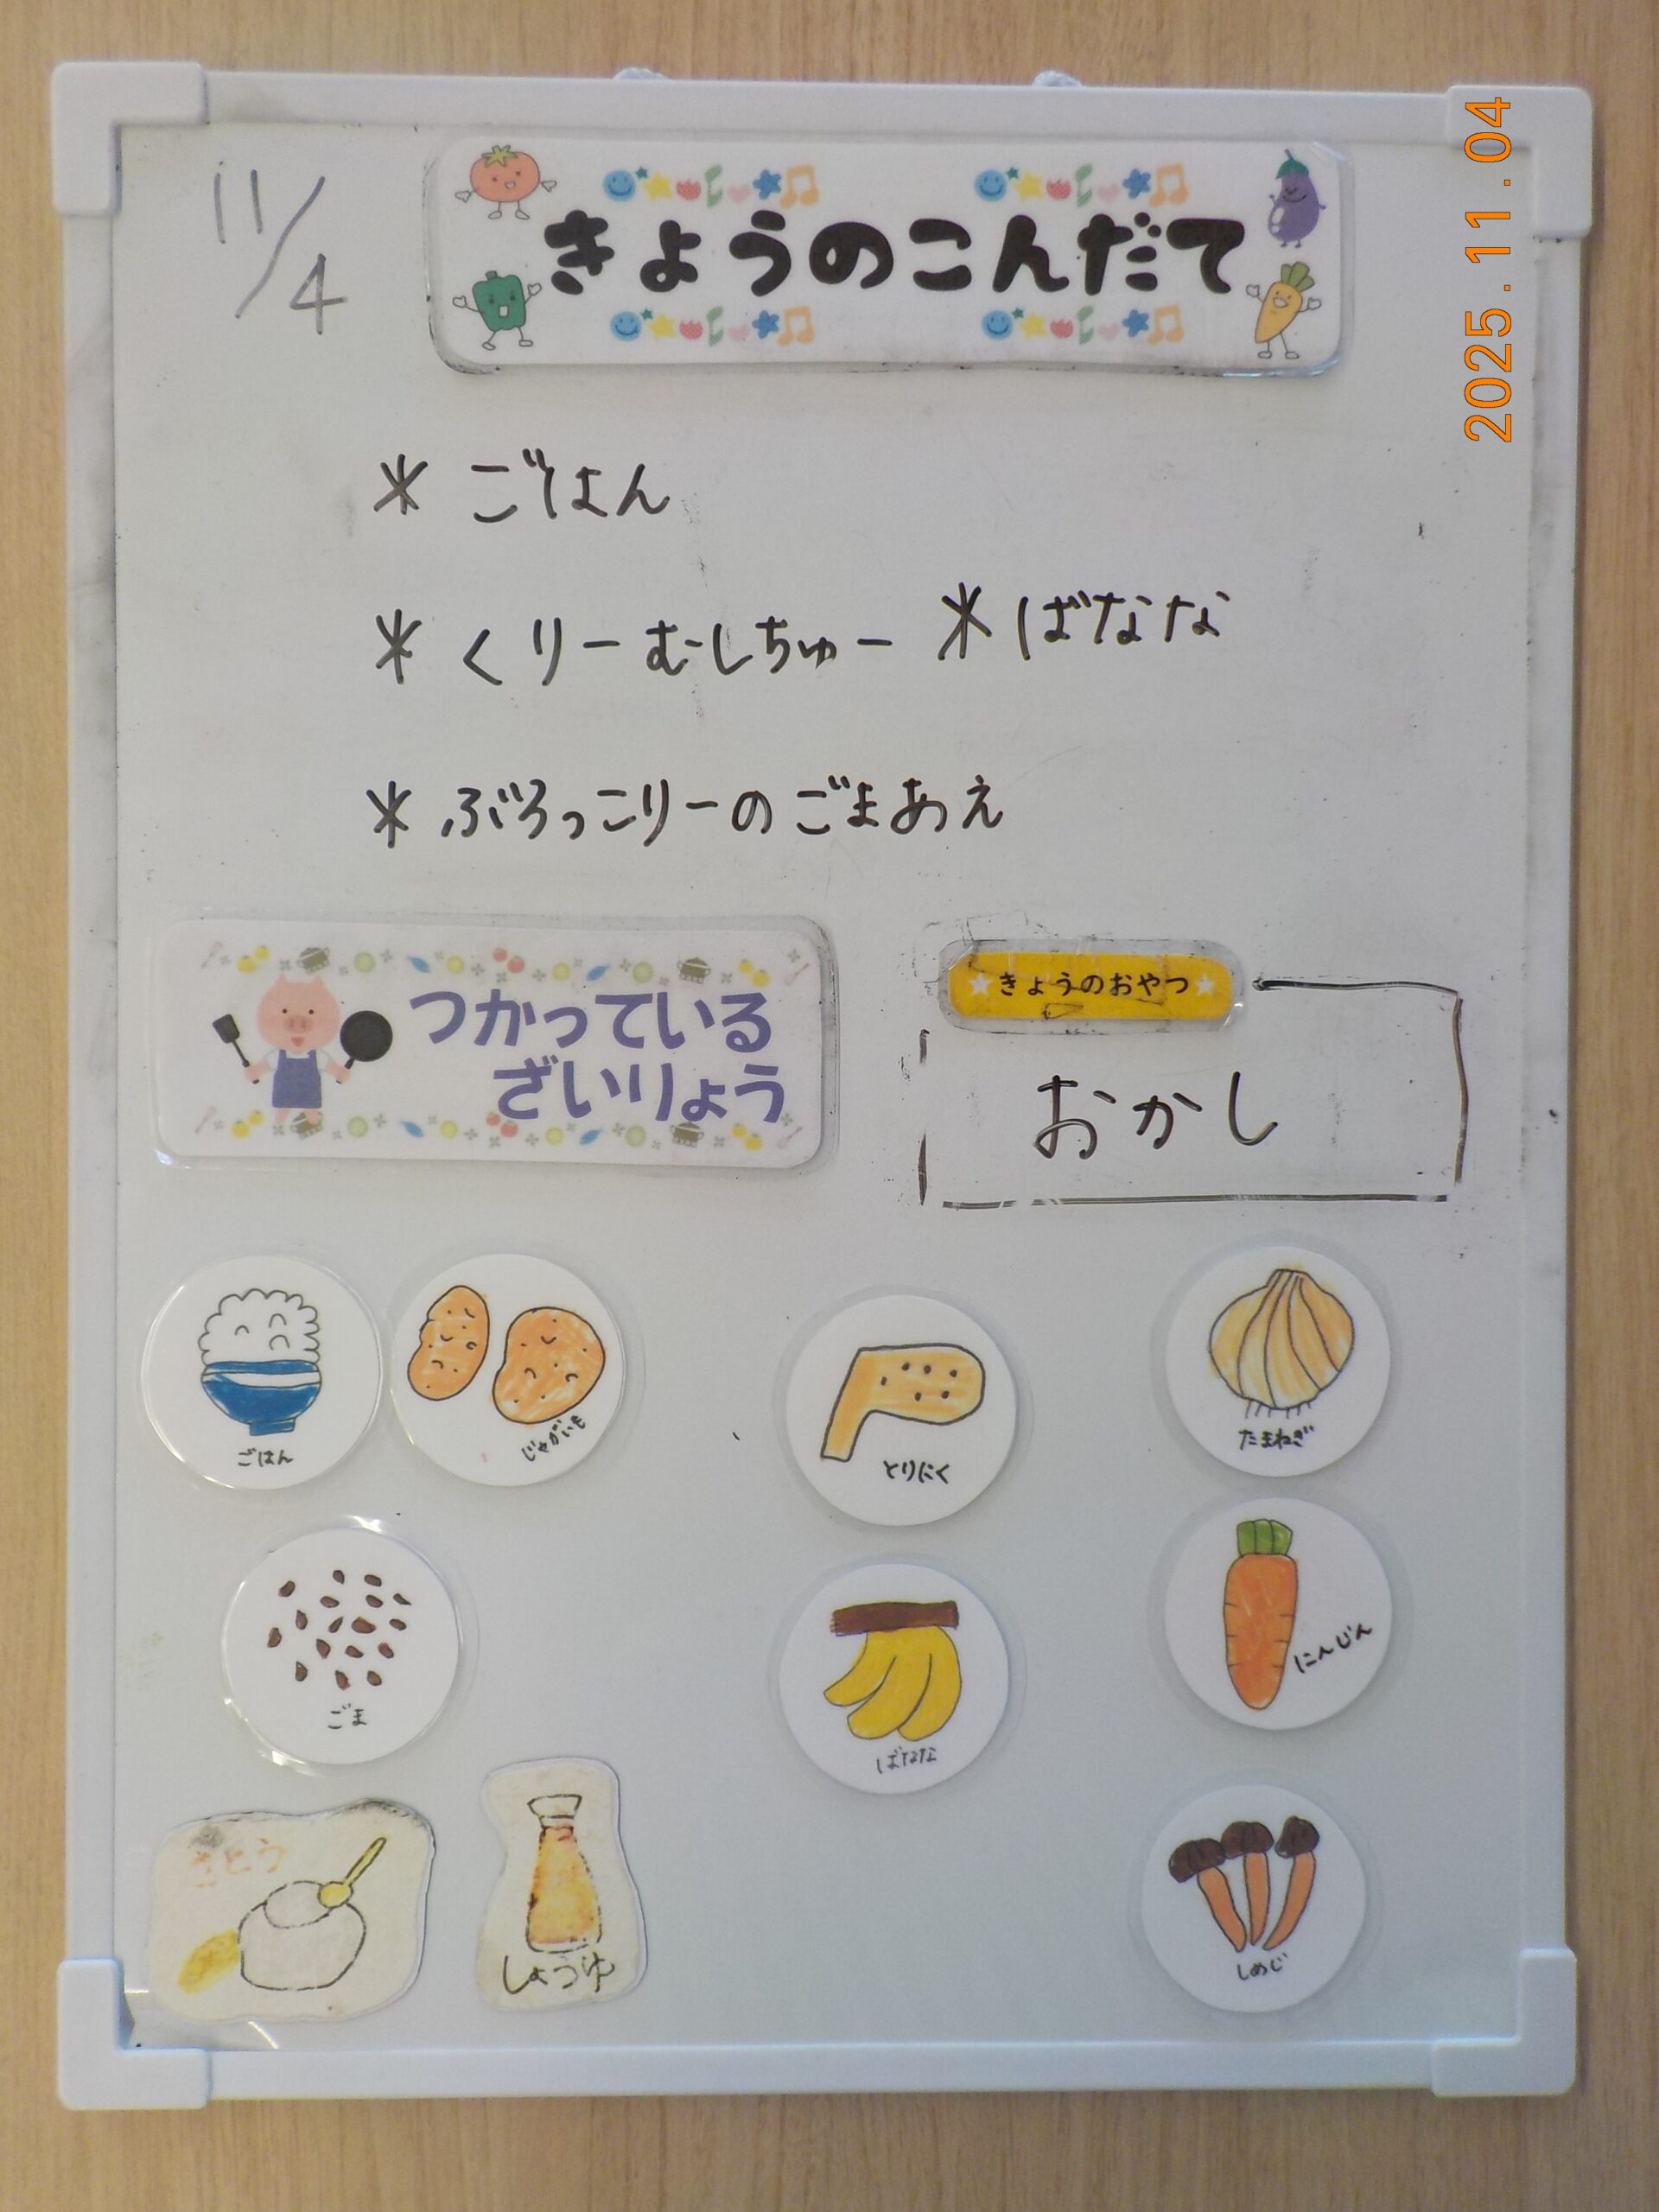 11/4
きょうのこんだて
2025.11.04
* ごはん
* くりーむしちゅー * ばなな
* ぶろっこりーのごまあえ
つかっている
ざいりょう
きょうのおやつ
おかし
ごはん
じゃがいも
とりにく
たまねぎ
ごま
ばなな
にんじん
さとう
しょうゆ
しめじ